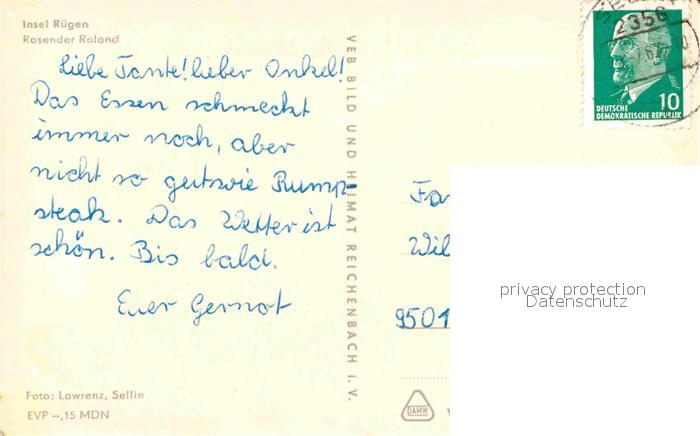 Insel Rügen
Rasender Roland
Liebe Tante! lieber Onkel!
Das Essen schmeckt
immer noch, aber
nicht so gut wie Rump-
steak. Das Wetter ist
schön. Bis bald.
Euer Gernot
Foto: Lawrenz, Sellin
EVP –,15 MDN
VEB BILD UND HEIMAT REICHENBACH I. V.
2356
10
DEUTSCHE
DEMOKRATISCHE REPUBLIK
Wil
9501
privacy protection
Datenschutz
DAMW